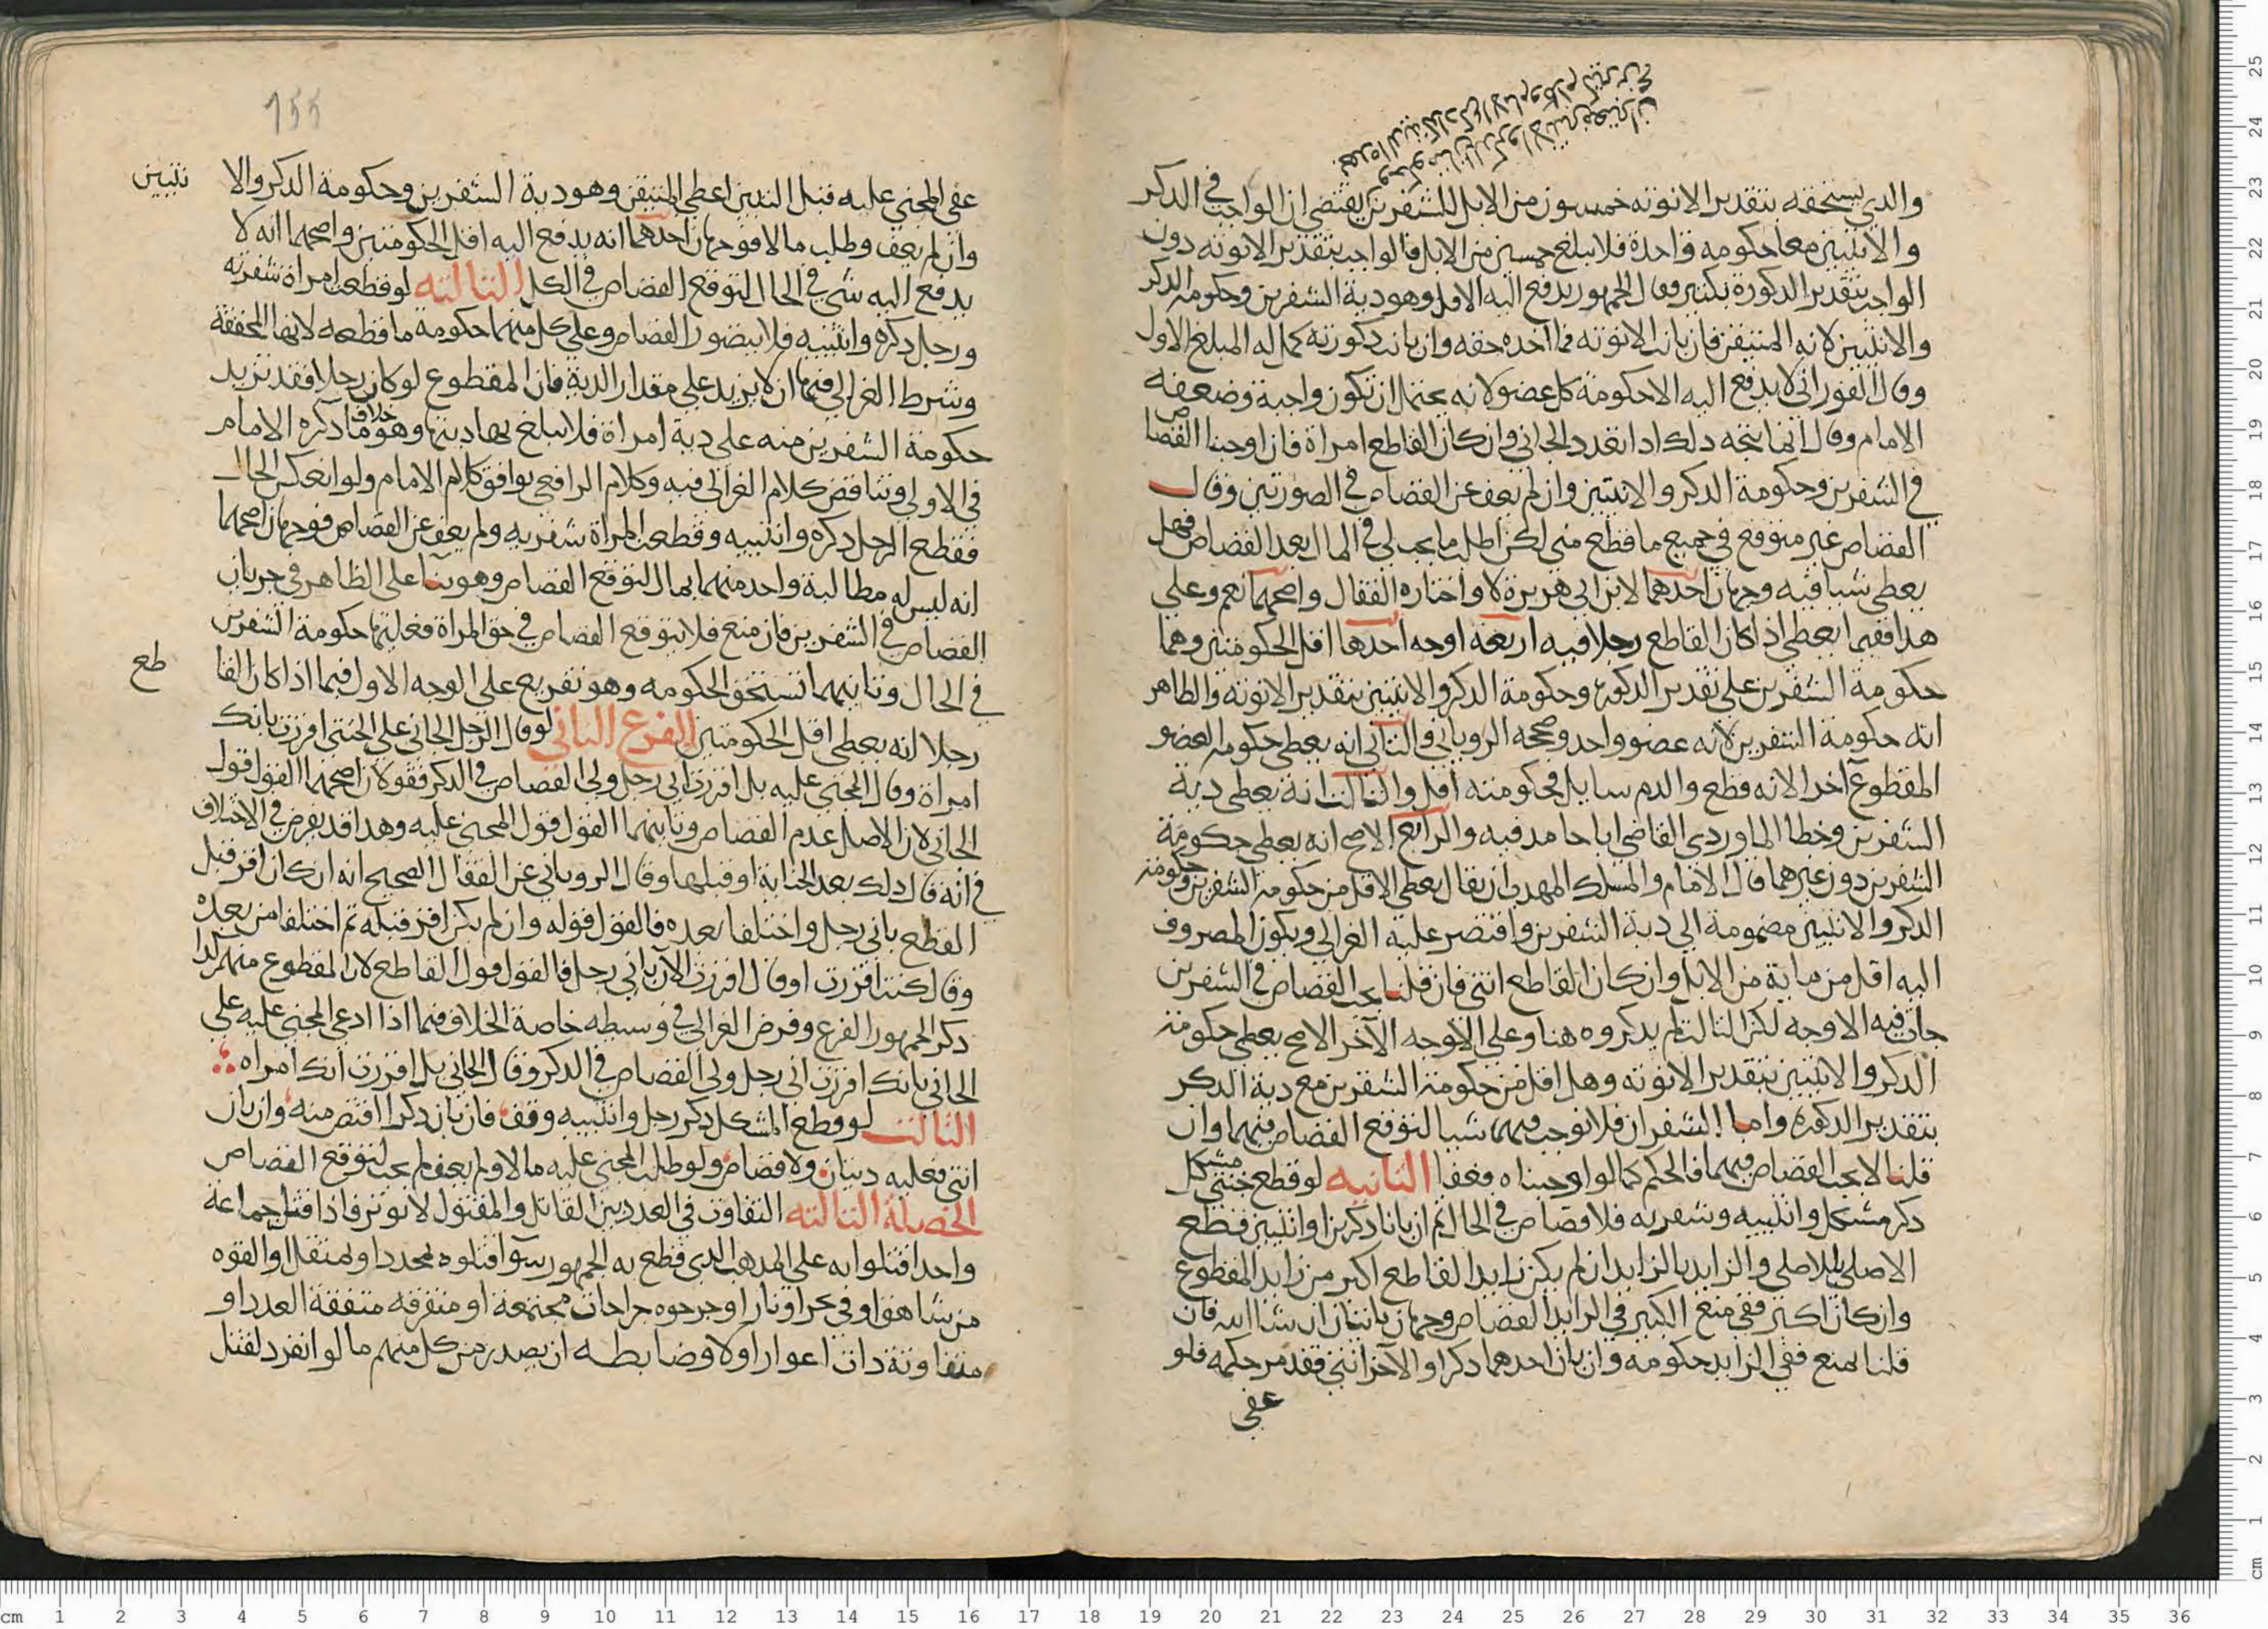 والذي يستحقه بتقدير الانوثه خمسون من الابل للشفرين يقتضي ان الواجب في الذكر
والانثيين معا حكومه واحدة فلا يبلغ خمسين من الابل فالواجب بتقدير الانوثه دون
الواجب بتقدير الذكورة بكثير وقال الجمهور يدفع اليه الاقل وهو دية الشفرين وحكومة الذكر
والانثيين لانه المتيقن فان بانت الانوثه فما اخذه حقه وان بانت ذكورته كمل له المبلغ الاول
وقال الفوراني لا يدفع اليه الا حكومة كل عضو لانه يحتمل ان تكون واجبة وضعفه
الامام وقال انما يتجه ذلك اذا تعدد الجاني وان كان القاطع امراة فان اوجبنا القصاص
في الشفرين وحكومة الذكر والانثيين وان لم يعف عن القصاص في الصورتين وقال
القصاص غير متوقع في جميع ما قطع مني لكن اطلب ما يجب لي في المال بعد القصاص فهل
يعطى شيا فيه وجهان احدهما لابن ابي هريرة لا واختاره القفال واصحهما نعم وعلى
هذا فقيما يعطى اذا كان القاطع رجلا فيه اربعة اوجه احدها اقل الحكومتين وهما
حكومة الشفرين على تقدير الذكورة وحكومة الذكر والانثيين بتقدير الانوثه والظاهر
انه حكومة الشفرين لانه عضو واحد وصححه الروياني والثاني انه يعطى حكومة العضو
المقطوع آخرا لانه قطع والدم سايل فحكومته اقل والثالث انه يعطى دية
الشفرين وخطا الماوردي القاضي ابا حامد فيه والرابع الاصح انه يعطى حكومة
الشفرين دون غيرهما قال الامام والمسلك المهذب ان يقال يعطى الاقل من حكومة الشفرين وحكومة
الذكر والانثيين مضمومة الى دية الشفرين واقتصر عليه الغزالي ويكون المصروف
اليه اقل من ماية من الابل وان كان القاطع انثى فان قلنا يجب القصاص في الشفرين
جات فيه الاوجه لكن الثالث لم يذكروه هنا وعلى الاوجه الآخر الاصح يعطى حكومة
الذكر والانثيين بتقدير الانوثه وهل اقل من حكومة الشفرين مع دية الذكر
بتقدير الذكوره واما الشفران فلا نوجب فيهما شيا لتوقع القصاص فيهما وان
قلنا لا يجب القصاص فيهما فالحكم كما لو اوجبناه فعفا الثانيه لو قطع خنثى مشكل
ذكر مشكل وانثييه وشفريه فلا قصاص في الحال ثم ان بانا ذكرين او انثيين قطع
الاصلي بالاصلي والزايد بالزايد ان لم يكن زايد القاطع اكبر من زايد المقطوع
وان كان اكبر ففي منع الكبير في الزايد القصاص وجهان ياتيان ان شا الله فان
قلنا يمنع ففي الزايد حكومه وان بان احدهما ذكرا والآخر انثى فقد مر حكمه فلو
عفى
155
عفى المجني عليه قبل التبين اعطي المتيقن وهو دية الشفرين وحكومة الذكر والا نثيين
وان لم يعف وطلب مالا فوجهان احدهما انه يدفع اليه اقل الحكومتين واصحهما انه لا
يدفع اليه شي في الحال لتوقع القصاص في الكل الثالثه لو قطعت امراة شفريه
ورجل ذكره وانثييه فلا يتصور القصاص وعلى كل منهما حكومة ما قطعه لانها المحققة
وشرط الغزالي فيهما ان لا يزيد على مقدار الدية فان المقطوع لو كان رجلا فقد تزيد
حكومة الشفرين منه على دية امراة فلا تبلغ بها ديتها وهو خلاف ما ذكره الامام
في الاولى وتناقض كلام الغزالي فيه وكلام الرافعي يوافق كلام الامام ولو انعكس الحال
فقطع الرجل ذكره وانثييه وقطعت المراة شفريه ولم يعف عن القصاص فوجهان اصحهما
انه ليس له مطالبة واحد منهما بمال لتوقع القصاص وهو بنا على الظاهر في جريان
القصاص في الشفرين فان منع فلا يتوقع القصاص في حق المراة فعليها حكومة الشفرين
في الحال وثانيهما تستحق الحكومه وهو تفريع على الوجه الاول فيما اذا كان القا طع
رجلا انه يعطى اقل الحكومتين الفرع الثاني لو قال الرجل الجاني على الخنثى اقررت بانك
امراة وقال المجني عليه بل اقررت اني رجل ولي القصاص في الذكر فقولان اصحهما القول قول
الجاني لان الاصل عدم القصاص وثانيهما القول قول المجني عليه وهذا قد يفرض في الاختلاف
في انه قال ذلك بعد الجناية او قبلها وقال الروياني عن القفال الصحيح انه ان كان اقر قبل
القطع باني رجل واختلفا بعده فالقول قوله وان لم يكن اقر قبله ثم اختلفا من بعده
وقال كنت اقررت او قال اقررت الآن باني رجل فالقول قول القاطع لان المقطوع متهم كذا
ذكر الجمهور الفرع وفرض الغزالي في وسيطه خاصة الخلاف فيما اذا ادعى المجني عليه على
الجاني بانك اقررت اني رجل ولي القصاص في الذكر وقال الجاني بل اقررت انك امراه
الثالث لو قطع المشكل ذكر رجل وانثييه وقف فان بان ذكرا اقتص منه وان بان
انثى فعليه ديتان ولا قصاص ولو طلب المجني عليه مالا ولم يعف لم يجب لتوقع القصاص
الخصلة الثالثه التفاوت في العدد بين القاتل والمقتول لا يوثر فاذا قتل جماعة
واحدا قتلوا به على المذهب الذي قطع به الجمهور سوآ قتلوه بمحدد او بمثقل او القوه
من شاهق او في بحر او نار او جرحوه جراحات مجتمعة او متفرقه متفقة العدد او
متفاوتة ذات اغوار اولا وضابطه ان يصدر من كل منهم ما لو انفرد لقتل